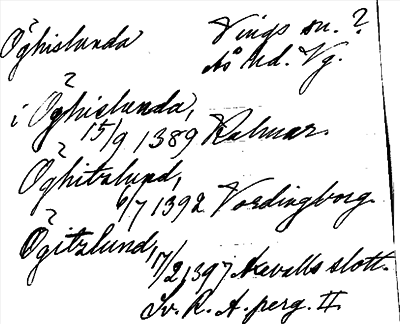 Öghislunda Vings sn. ?
Ås hd. Vg.
?
i Öghislunda,
15/9 1389 Kalmar.
?
Öghitzlund,
6/7 1392 Vordingborg.
?
Ögitzlund,
17/2 1397 Axevalls slott.
Sv. R. A. perg. II.